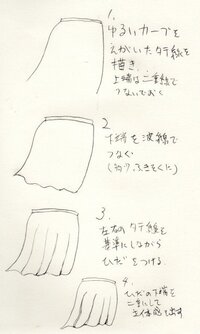 1.
ゆるいカーブを
えがいたタテ線を
描き…
上端は二重線で
つないでおく
2
下端を波線で
つなぐ
3.
左右のタテ線を
基準にしながら
ひだをつける。
4.
ひだの下端を
二重にして
立体感を出す